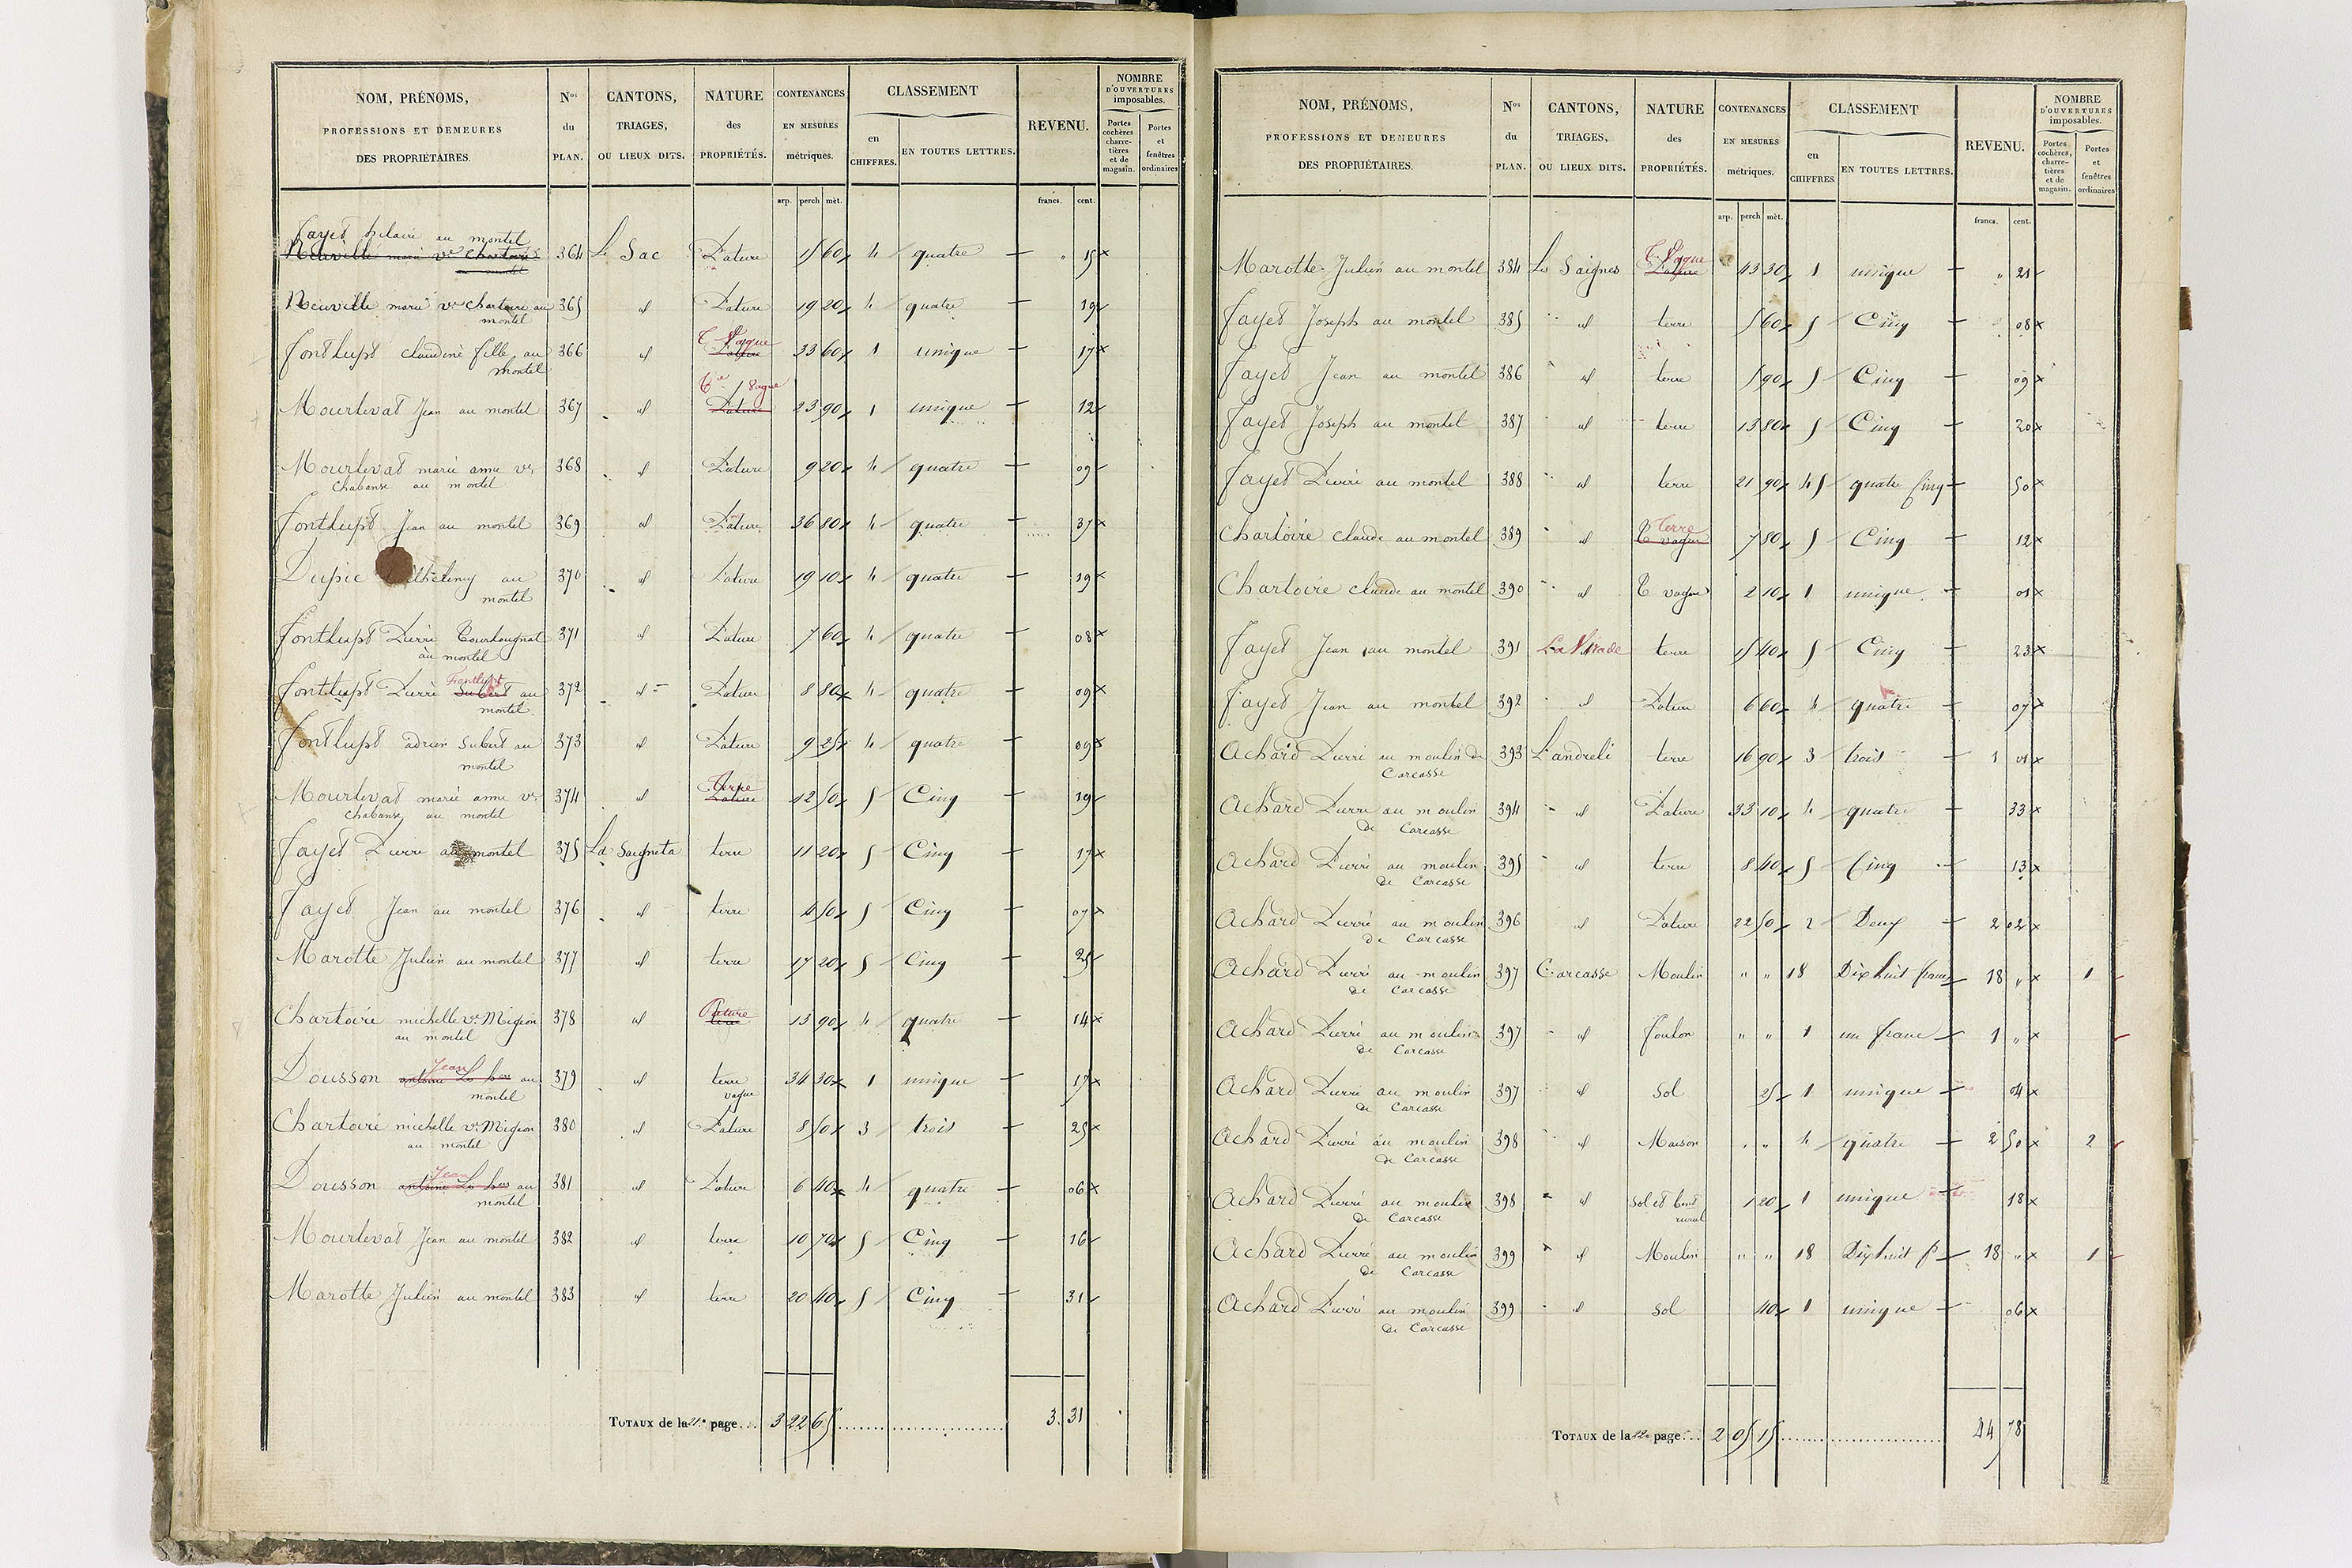 NOM, PRÉNOMS, PROFESSIONS ET DEMEURES DES PROPRIÉTAIRES. | Nos du PLAN. | CANTONS, TRIAGES, OU LIEUX DITS. | NATURE des PROPRIÉTÉS. | CONTENANCES EN MESURES métriques. | CLASSEMENT en CHIFFRES. EN TOUTES LETTRES. | REVENU. | NOMBRE D'OUVERTURES imposables. Portes cochères charretières et de magasin. Portes et fenêtres ordinaires
arp. perch mèt. francs. cent.
Fayet hilaire au montel
Neuville marie ve Chartoire montel 364 Le Sac Pature 15 60 4 quatre " 15
Neuville marie ve Chartoire au montel 365 id Pature 19 20 4 quatre 19
fontlupt claudine fille au montel 366 id T Vague Pature 33 60 1 unique 17
Mourlevat Jean au montel 367 id Vague Pature 23 90 1 unique 12
Mourlevat marie anne ve chabanse au montel 368 id Pature 9 20 4 quatre 09
fontlupt Jean au montel 369 id Pature 36 80 4 quatre 37
Dupic au montel 370 id Pature 19 10 4 quatre 19
fontlupt Pierre Tourlougnat au montel 371 id Pature 7 60 4 quatre 08
fontlupt Pierre Fontlupt Subert au montel 372 id Pature 8 80 4 quatre 09
fontlupt adrien Subert au montel 373 id Pature 9 25 4 quatre 09
Mourlevat marie anne ve chabanse au montel 374 id Terre Pature 12 50 5 Cinq 19
fayet Pierre au montel 375 La Saigneta terre 11 20 5 Cinq 17
fayet Jean au montel 376 id terre 4 50 5 Cinq 07
Marotte Julien au montel 377 id terre 17 20 5 Cinq 25
Chartoire michelle ve Migeon au montel 378 id Pature terre 13 90 4 quatre 14
Dousson Jean antoine au montel 379 id terre vague 34 30 1 unique 17
Chartoire michelle ve Migeon au montel 380 id Pature 8 50 3 trois 25
Dousson Jean antoine au montel 381 id Pature 6 40 4 quatre 06
Mourlevat Jean au montel 382 id terre 10 70 5 Cinq 16
Marotte Julien au montel 383 id terre 20 40 5 Cinq 31
TOTAUX de la 21e page... 3 22 65 3 31
NOM, PRÉNOMS, PROFESSIONS ET DEMEURES DES PROPRIÉTAIRES. | Nos du PLAN. | CANTONS, TRIAGES, OU LIEUX DITS. | NATURE des PROPRIÉTÉS. | CONTENANCES EN MESURES métriques. | CLASSEMENT en CHIFFRES. EN TOUTES LETTRES. | REVENU. | NOMBRE D'OUVERTURES imposables. Portes cochères, charretières et de magasin. Portes et fenêtres ordinaires
arp. perch mèt. francs. cent.
Marotte Julien au montel 384 Les Saignes T Vague Pature 43 30 1 unique " 21
fayet Joseph au montel 385 id terre 5 60 5 Cinq 08
fayet Jean au montel 386 id terre 5 90 5 Cinq 09
fayet Joseph au montel 387 id terre 13 80 5 Cinq 20
fayet Pierre au montel 388 id terre 21 90 4 5 quatre Cinq 50
Chartoire claude au montel 389 id Terre T vague 7 80 5 Cinq 12
Chartoire claude au montel 390 id T vague 2 10 1 unique 01
fayet Jean au montel 391 La Virade terre 15 40 5 Cinq 23
fayet Jean au montel 392 id Pature 6 60 4 quatre 07
Achard Pierre au moulin de Carcasse 393 L'andreli terre 16 90 3 trois 1 01
Achard Pierre au moulin de Carcasse 394 id Pature 33 10 4 quatre 33
Achard Pierre au moulin de Carcasse 395 id terre 8 40 5 Cinq 13
Achard Pierre au moulin de Carcasse 396 id Pature 22 50 2 Deux 2 02
Achard Pierre au moulin de Carcasse 397 Carcasse Moulin " " 18 Dix huit francs 18 " 1
Achard Pierre au moulin de Carcasse 397 id foulon " " 1 un franc 1 "
Achard Pierre au moulin de Carcasse 397 id Sol 25 1 unique 04
Achard Pierre au moulin de Carcasse 398 id Maison " " 4 quatre 2 50 2
Achard Pierre au moulin de Carcasse 398 id Sol et bmt rural 1 20 1 unique 18
Achard Pierre au moulin de Carcasse 399 id Moulin " " 18 Dix huit f 18 " 1
Achard Pierre au moulin de Carcasse 399 id Sol 40 1 unique 06
TOTAUX de la 22e page... 2 05 15 44 78